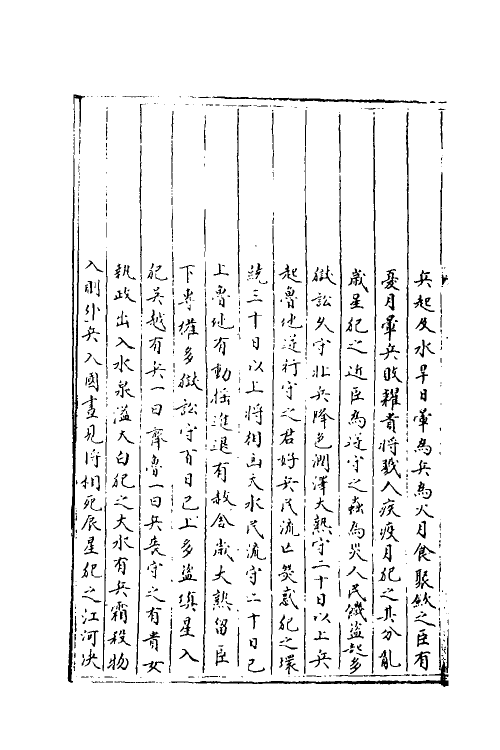 兵起及水旱日暈為兵為火月食聚斂之臣有
憂月暈兵敗糴貴將戮人疾疫月犯之其分亂
歲星犯之近臣為逆守之蟲為災人民饑盜起多
獄訟久守北兵降色潤澤大熟守二十日以上兵
起魯地逆行守之君好兵民流亡熒惑犯之環
繞三十日以上將相凶大水民流守二十日已
上魯地有動搖進退有赦令歲大熟留臣
下專權多獄訟守百日已上多盜填星入
犯吳越有兵一曰齊魯一曰兵喪守之有貴女
執政出入水泉溢太白犯之大水有兵霜殺物
入則外兵入國晝見將相死辰星犯之江河決